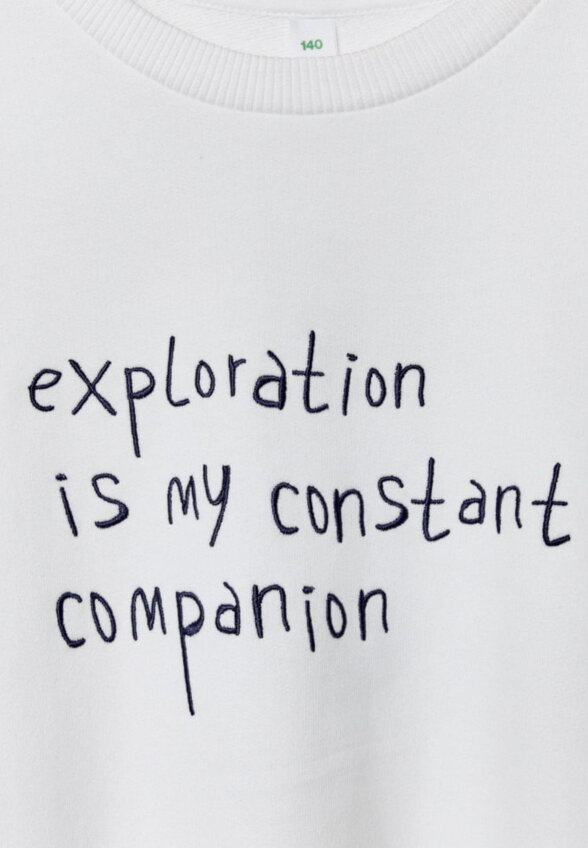 140
exploration
is my constant
companion